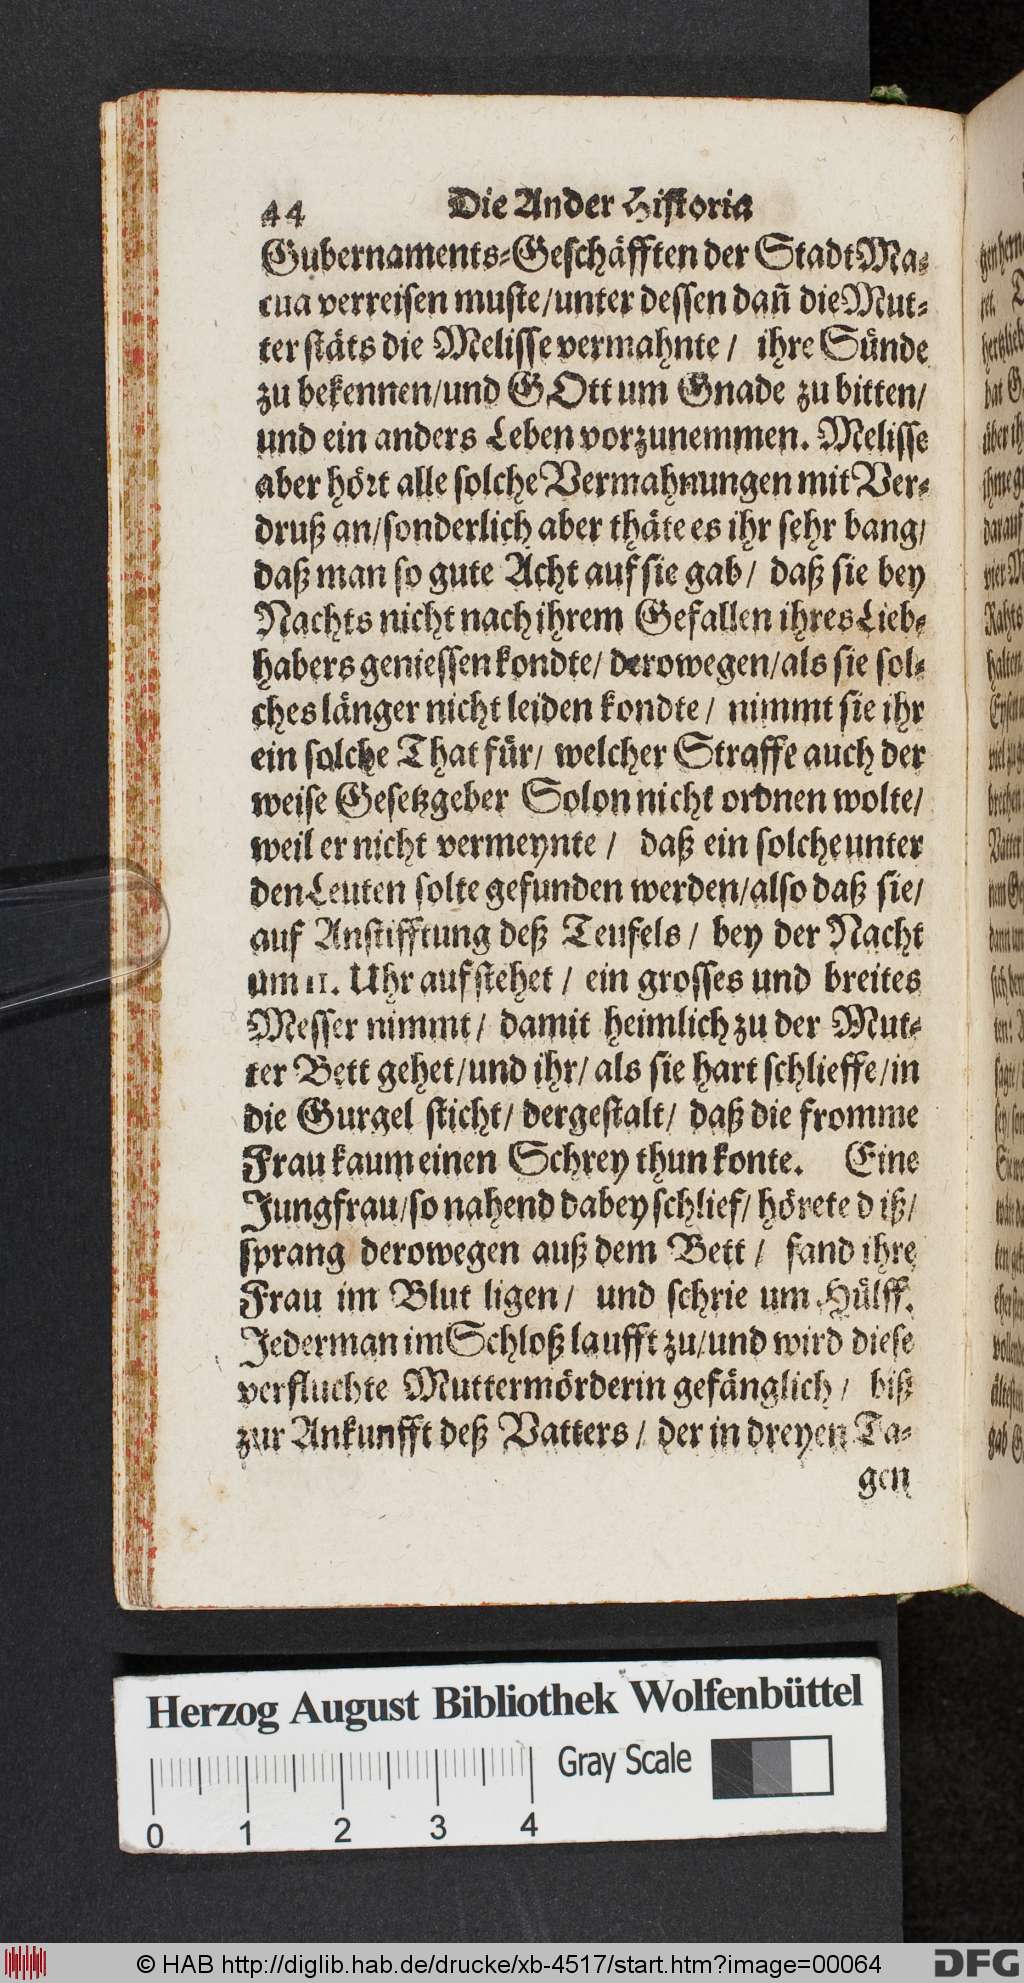 44 Die Ander Historia
Gubernaments-Geschäfften der Stadt Ma-
cua verreisen muste/unter dessen dañ die Mut-
ter stäts die Melisse vermahnte / ihre Sünde
zu bekennen/und GOtt um Gnade zu bitten/
und ein anders Leben vorzunemmen. Melisse
aber hört alle solche Vermahnungen mit Ver-
druß an/sonderlich aber thäte es ihr sehr bang/
daß man so gute Acht auf sie gab/ daß sie bey
Nachts nicht nach ihrem Gefallen ihres Lieb-
habers geniessen kondte/ derowegen/als sie sol-
ches länger nicht leiden kondte / nimmt sie ihr
ein solche That für/ welcher Straffe auch der
weise Gesetzgeber Solon nicht ordnen wolte/
weil er nicht vermeynte / daß ein solche unter
den Leuten solte gefunden werden/also daß sie/
auf Anstifftung deß Teufels / bey der Nacht
um 11. Uhr aufstehet / ein grosses und breites
Messer nimmt/ damit heimlich zu der Mut-
ter Bett gehet/und ihr/ als sie hart schlieffe/in
die Gurgel sticht/ dergestalt/ daß die fromme
Frau kaum einen Schrey thun konte. Eine
Jungfrau/so nahend dabey schlief/ hörete diß/
sprang derowegen auß dem Bett / fand ihre
Frau im Blut ligen/ und schrie um Hülff.
Jederman im Schloß laufft zu/und wird diese
verfluchte Muttermörderin gefänglich / biß
zur Ankunfft deß Vatters / der in dreyen Ta-
gen
Herzog August Bibliothek Wolfenbüttel
Gray Scale
0 1 2 3 4
© HAB http://diglib.hab.de/drucke/xb-4517/start.htm?image=00064
DFG